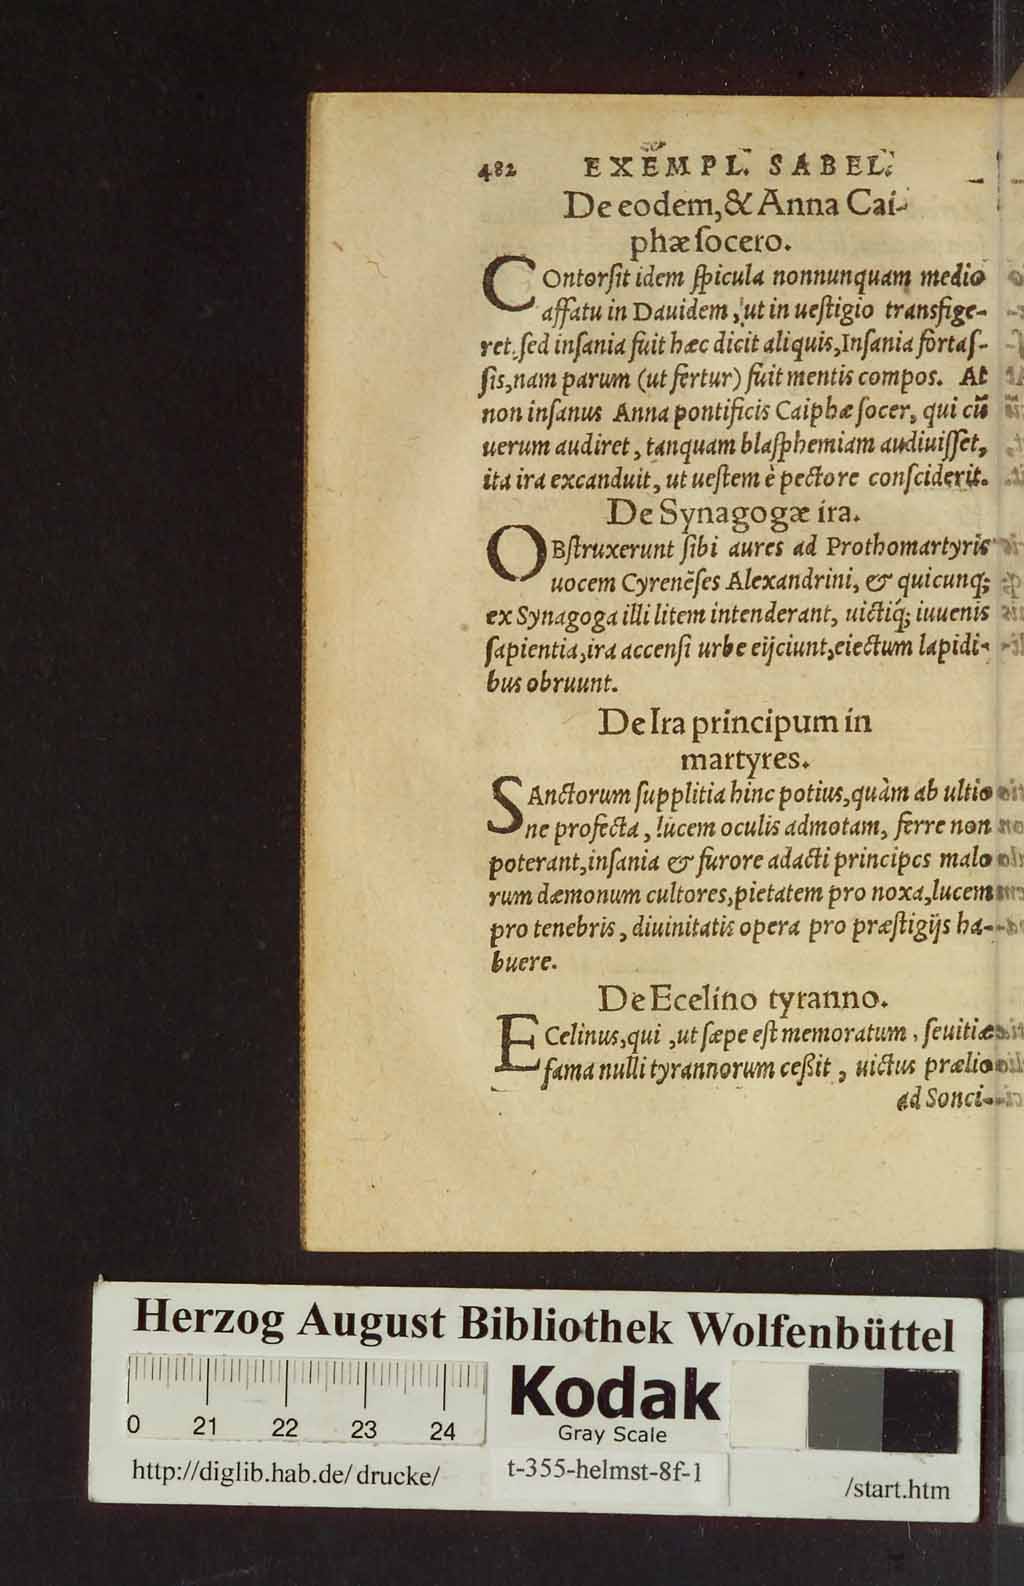 482 EXEMPL. SABEL.
De eodem, & Anna Cai-
phæ ſocero.
COntorſit idem ſpicula nonnunquam medio
affatu in Dauidem, ut in ueſtigio transfige-
ret. ſed inſania fuit hæc dicit aliquis, Inſania fortaſ-
ſis, nam parum (ut fertur) fuit mentis compos. At
non inſanus Anna pontificis Caiphæ ſocer, qui cũ
uerum audiret, tanquam blaſphemiam audiuiſſet,
ita ira excanduit, ut ueſtem è pectore conſciderit.
De Synagogæ ira.
OBſtruxerunt ſibi aures ad Prothomartyris
uocem Cyrenẽſes Alexandrini, & quicunq;
ex Synagoga illi litem intenderant, uictiq́; iuuenis
ſapientia, ira accenſi urbe eijciunt, eiectum lapidi-
bus obruunt.
De Ira principum in
martyres.
SAnctorum ſupplitia hinc potius, quàm ab ultio
ne profecta, lucem oculis admotam, ferre non
poterant, inſania & furore adacti principes malo
rum dæmonum cultores, pietatem pro noxa, lucem
pro tenebris, diuinitatis opera pro præſtigijs ha-
buere.
De Ecelino tyranno.
ECelinus, qui, ut ſæpe eſt memoratum, ſeuitiæ
fama nulli tyrannorum ceßit, uictus prælio
ad Sonci-
Herzog August Bibliothek Wolfenbüttel
0 21 22 23 24
Kodak
Gray Scale
http://diglib.hab.de/drucke/ t-355-helmst-8f-1 /start.htm